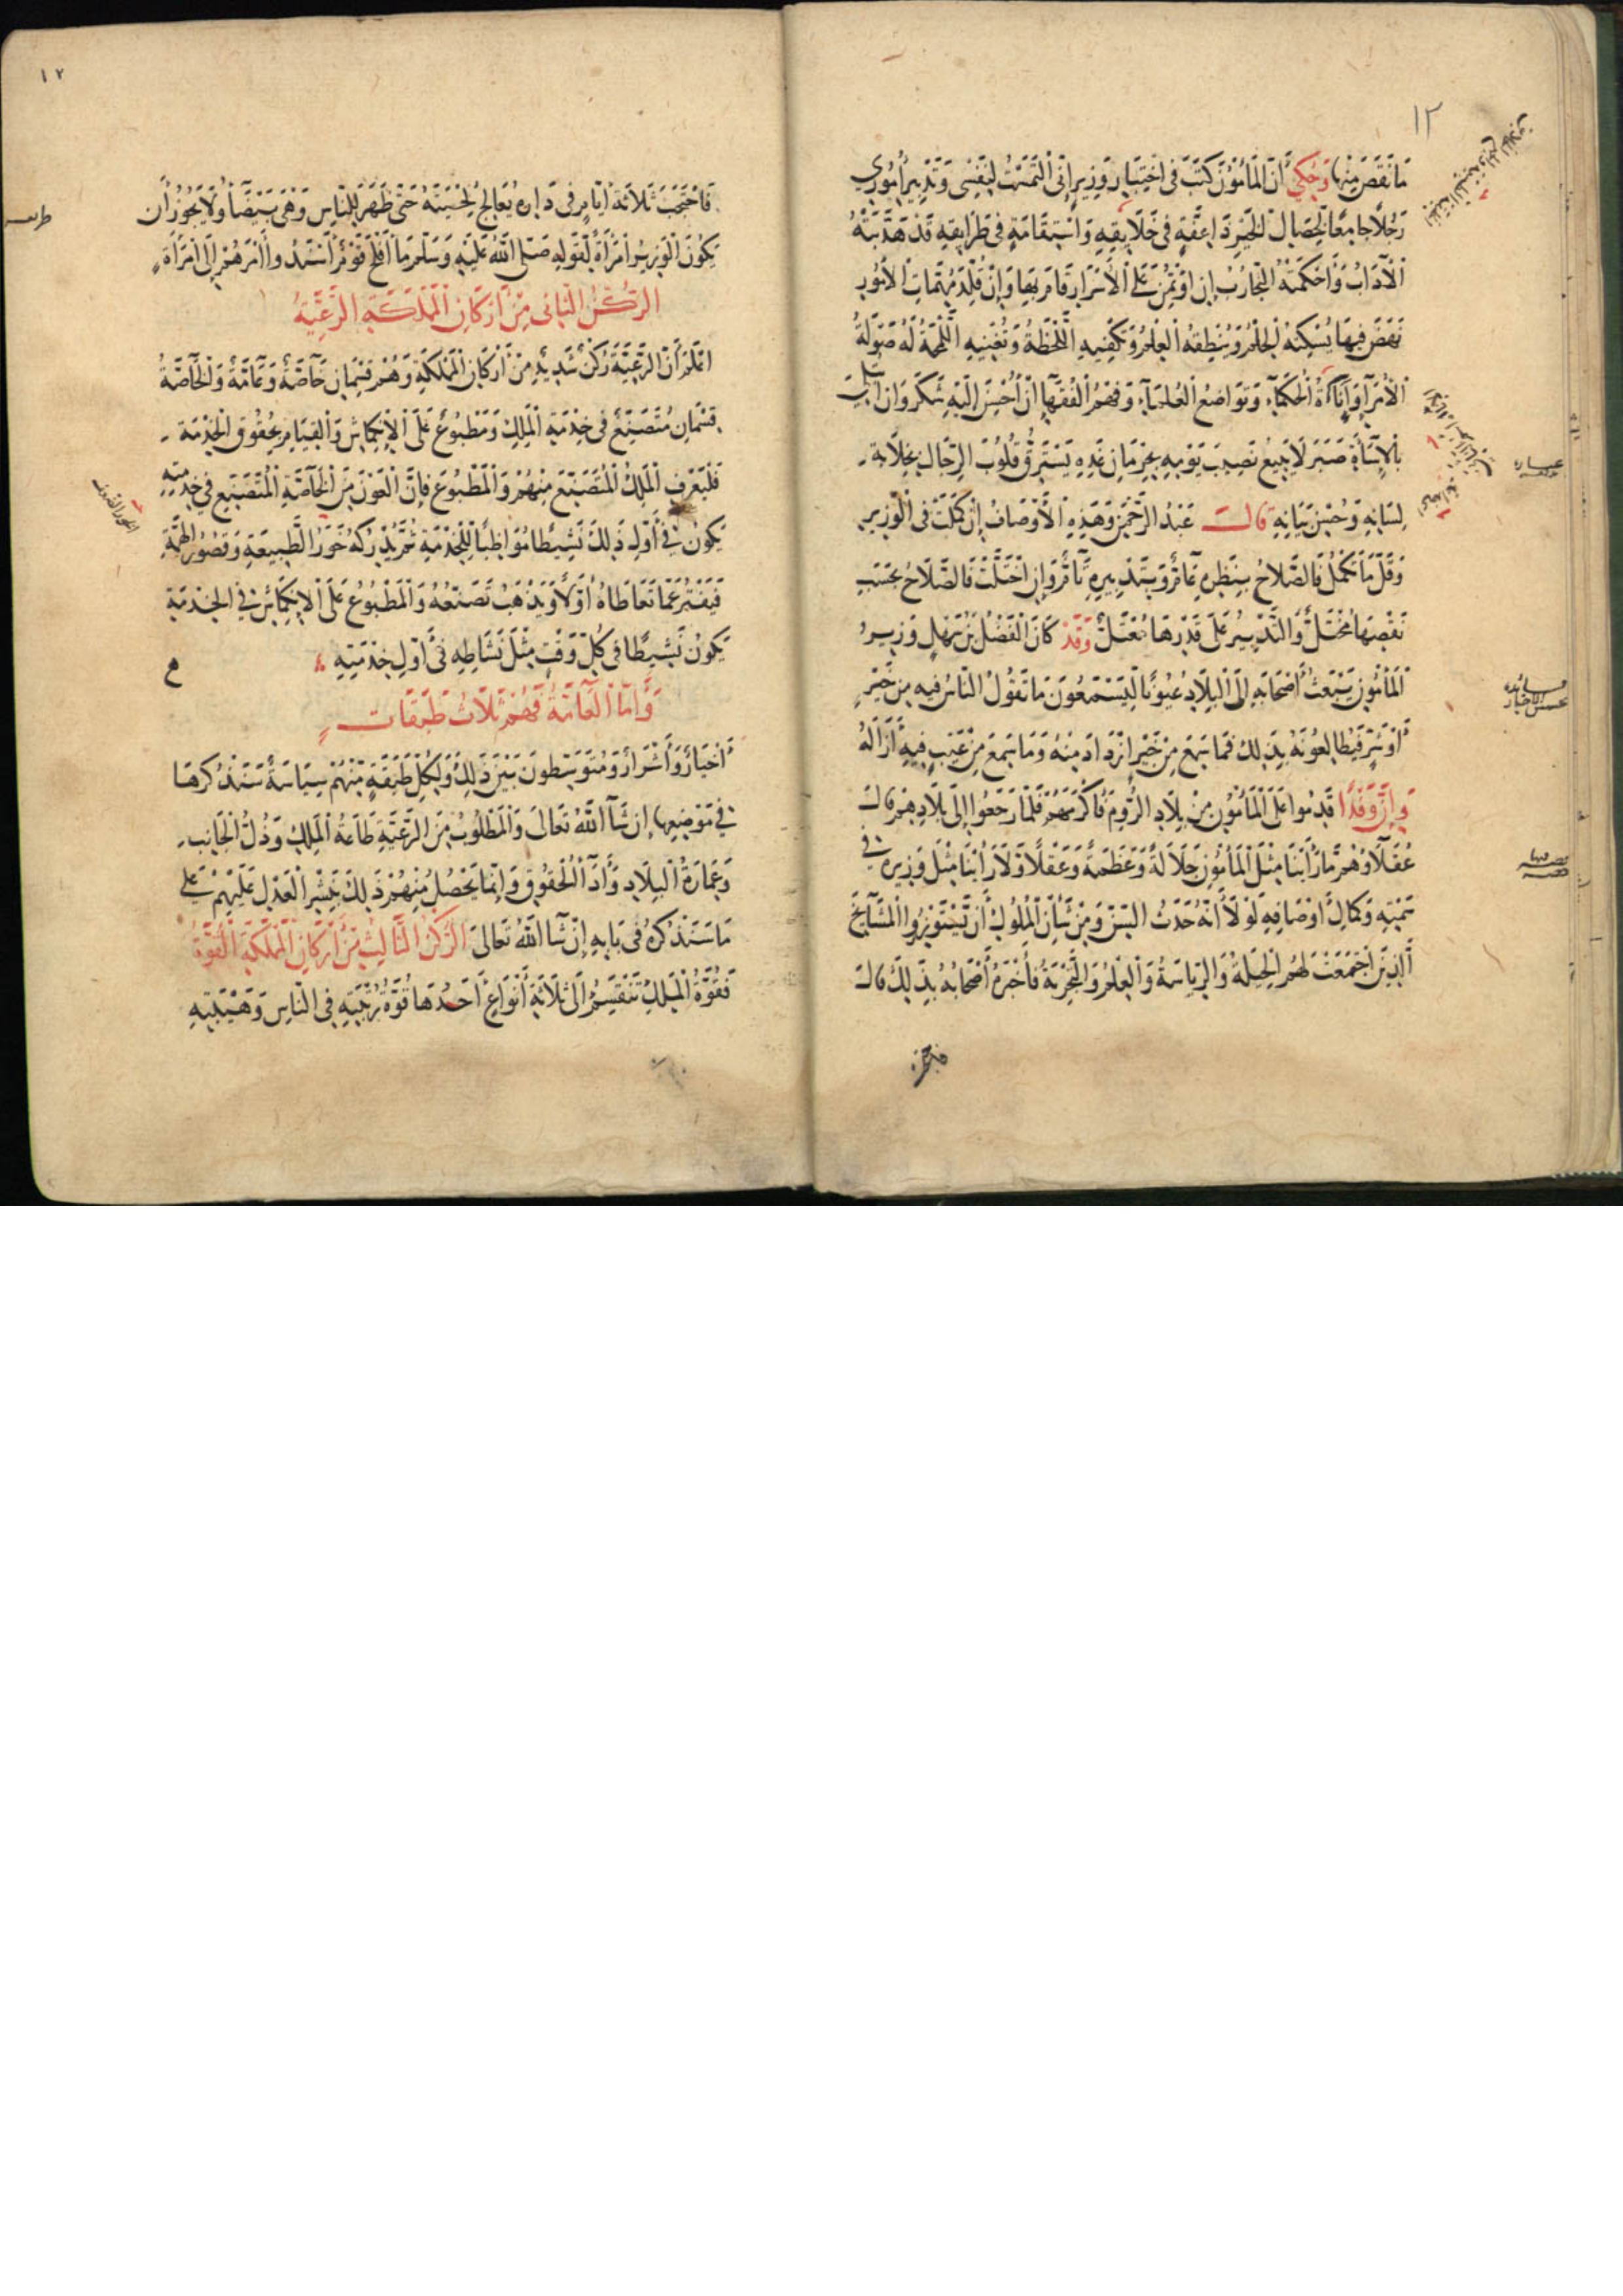 ١٢
مَا نَقَصَ مِنْهَا وَحُكِيَ أَنَّ الْمَأْمُونَ كَتَبَ فِي اخْتِيَارِ وَزِيرٍ إِنِّي الْتَمَسْتُ لِنَفْسِي وَتَدْبِيرِ أُمُورِي
رَجُلاً جَامِعًا لِخِصَالِ الْخَيْرِ ذَا عِفَّةٍ فِي خَلَايِقِهِ وَاسْتِقَامَةٍ فِي طَرَايِقِهِ قَدْ هَذَّبَتْهُ
الْآدَابُ وَأَحْكَمَتْهُ التَّجَارُبُ إِنِ اؤْتُمِنَ عَلَى الْأَسْرَارِ قَامَ بِهَا وَإِنْ قُلِّدَ مُهِمَّاتِ الْأُمُورِ
نَهَضَ فِيهَا يُسْكِتُهُ الْحِلْمُ وَيُنْطِقُهُ الْعِلْمُ وَتَكْفِيهِ اللَّحْظَةُ وَتُغْنِيهِ اللَّمْحَةُ لَهُ صَوْلَةُ
الْأُمَرَآءِ وَأَنَاةُ الْحُكَمَآءِ وَتَوَاضُعُ الْعُلَمَآءِ وَفَهْمُ الْفُقَهَآءِ إِنْ أُحْسِنَ إِلَيْهِ شَكَرَ وَإِنِ ابْتُلِيَ
بِالْإِسَآءَةِ صَبَرَ لَا يَبِيعُ نَصِيبَ يَوْمِهِ بِحِرْمَانِ غَدِهِ يَسْتَرِقُّ قُلُوبَ الرِّجَالِ بِخِلَابَةِ
لِسَانِهِ وَحُسْنِ بَيَانِهِ قَالَ عَبْدُ الرَّحْمٰنِ وَهَذِهِ الْأَوْصَافُ إِنْ كَمُلَتْ فِي الْوَزِيرِ
وَقَلَّ مَا تَكْمُلُ فَالصَّلَاحُ بِنَظَرِهِ عَامٌّ وَبِتَدْبِيرِهِ تَامٌّ وَإِنِ اخْتَلَّتْ فَالصَّلَاحُ بِحَسَبِ
نَقْصِهَا مُخْتَلٌّ وَالتَّدْبِيرُ عَلَى قَدْرِهَا مُعْتَلٌّ وَقَدْ كَانَ الْفَضْلُ بْنُ سَهْلٍ وَزِيرُ
الْمَأْمُونِ يَبْعَثُ أَصْحَابَهُ إِلَى الْبِلَادِ عُيُونًا لِيَسْتَمِعُونَ مَا تَقُولُ النَّاسُ فِيهِ مِنْ خَيْرٍ
أَوْ شَرٍّ فَيُطَالِعُونَهُ بِذَلِكَ فَمَا سَمِعَ مِنْ خَيْرٍ ازْدَادَ مِنْهُ وَمَا سَمِعَ مِنْ عَيْبٍ فِيهِ أَزَالَهُ
وَإِنَّ وَفْدًا قَدِمُوا عَلَى الْمَأْمُونِ مِنْ بِلَادِ الرُّومِ فَأَكْرَمَهُمْ فَلَمَّا رَجَعُوا إِلَى بِلَادِهِمْ قَالَ
عُقَلَاؤُهُمْ مَا رَأَيْنَا مِثْلَ الْمَأْمُونِ جَلَالَةً وَعَظَمَةً وَعَقْلًا وَلَا رَأَيْنَا مِثْلَ وَزِيرِهِ فِي
سَمْتِهِ وَكَمَالِ أَوْصَافِهِ لَوْلَا أَنَّهُ حَدَثُ السِّنِّ وَمِنْ شَأْنِ الْمُلُوكِ أَنْ يَسْتَوْزِرُوا الْمَشَايِخَ
الَّذِينَ اجْتَمَعَتْ لَهُمُ الْحِيلَةُ وَالرِّيَاسَةُ وَالْعِلْمُ وَالتَّجْرِبَةُ فَأَخْبَرَهُ أَصْحَابُهُ بِذَلِكَ قَالَ
١٧
فَاحْتَجَبَ ثَلَاثَةَ أَيَّامٍ فِي دَارِهِ يُعَالِجُ لِحْيَتَهُ حَتَّى ظَهَرَ لِلنَّاسِ وَهِيَ بَيْضَآءُ وَلَا يَجُوزُ أَن
يَكُونَ الْوَزِيرُ امْرَأَةً لِقَوْلِهِ صَلَّى اللَّهُ عَلَيْهِ وَسَلَّمَ مَا أَفْلَحَ قَوْمٌ أَسْنَدُوا أَمْرَهُمْ إِلَى امْرَأَةٍ
الرُّكْنُ الثَّانِي مِنْ أَرْكَانِ الْمَمْلَكَةِ الرَّعِيَّةُ
اعْلَمْ أَنَّ الرَّعِيَّةَ رُكْنٌ شَدِيدٌ مِنْ أَرْكَانِ الْمَمْلَكَةِ وَهُمْ قِسْمَانِ خَآصَّةٌ وَعَامَّةٌ وَالْخَآصَّةُ
قِسْمَانِ مُتَصَنِّعٌ فِي خِدْمَةِ الْمَلِكِ وَمَطْبُوعٌ عَلَى الْإِنْكِمَاشِ وَالْقِيَامِ بِحُقُوقِ الْخِدْمَةِ
فَلْيَعْرِفِ الْمَلِكُ الْمُتَصَنِّعَ مِنْهُمْ وَالْمَطْبُوعَ فَإِنَّ الْعَوْنَ مِنَ الْخَآصَّةِ الْمُتَصَنِّعِ فِي خِدْمَتِهِ
يَكُونُ فِي أَوَّلِ ذَلِكَ نَشِيطًا مُوَاظِبًا لِلْخِدْمَةِ ثُمَّ يُدْرِكُهُ خَوَرُ الطَّبِيعَةِ وَقُصُورُ الْهِمَّةِ
فَيَفْتُرُ عَمَّا تَعَاطَاهُ أَوَّلاً وَيَذْهَبُ تَصَنُّعُهُ وَالْمَطْبُوعُ عَلَى الْإِنْكِمَاشِ فِي الْخِدْمَةِ
يَكُونُ نَشِيطًا فِي كُلِّ وَقْتٍ مِثْلَ نَشَاطِهِ فِي أَوَّلِ خِدْمَتِهِ
وَأَمَّا الْعَآمَّةُ فَهُمْ ثَلَاثُ طَبَقَاتٍ
أَخْيَارٌ وَأَشْرَارٌ وَمُتَوَسِّطُونَ بَيْنَ ذَلِكَ وَلِكُلِّ طَبَقَةٍ مِنْهُمْ سِيَاسَةٌ سَنَذْكُرُهَا
فِي مَوْضِعِهَا إِنْ شَآءَ اللَّهُ تَعَالَى وَالْمَطْلُوبُ مِنَ الرَّعِيَّةِ طَاعَةُ الْمَلِكِ وَذُلُّ الْجَانِبِ
وَعِمَارَةُ الْبِلَادِ وَأَدَآءُ الْحُقُوقِ وَإِنَّمَا يَحْصُلُ مِنْهُمْ ذَلِكَ بِنَشْرِ الْعَدْلِ عَلَيْهِمْ عَلَى
مَا سَنَذْكُرُهُ فِي بَابِهِ إِنْ شَآءَ اللَّهُ تَعَالَى الرُّكْنُ الثَّالِثُ مِنْ أَرْكَانِ الْمَمْلَكَةِ الْقُوَّةُ
فَقُوَّةُ الْمَلِكِ تَنْقَسِمُ إِلَى ثَلَاثَةِ أَنْوَاعٍ أَحَدُهَا قُوَّةُ رُتْبَتِهِ فِي النَّاسِ وَهَيْبَتِهِ